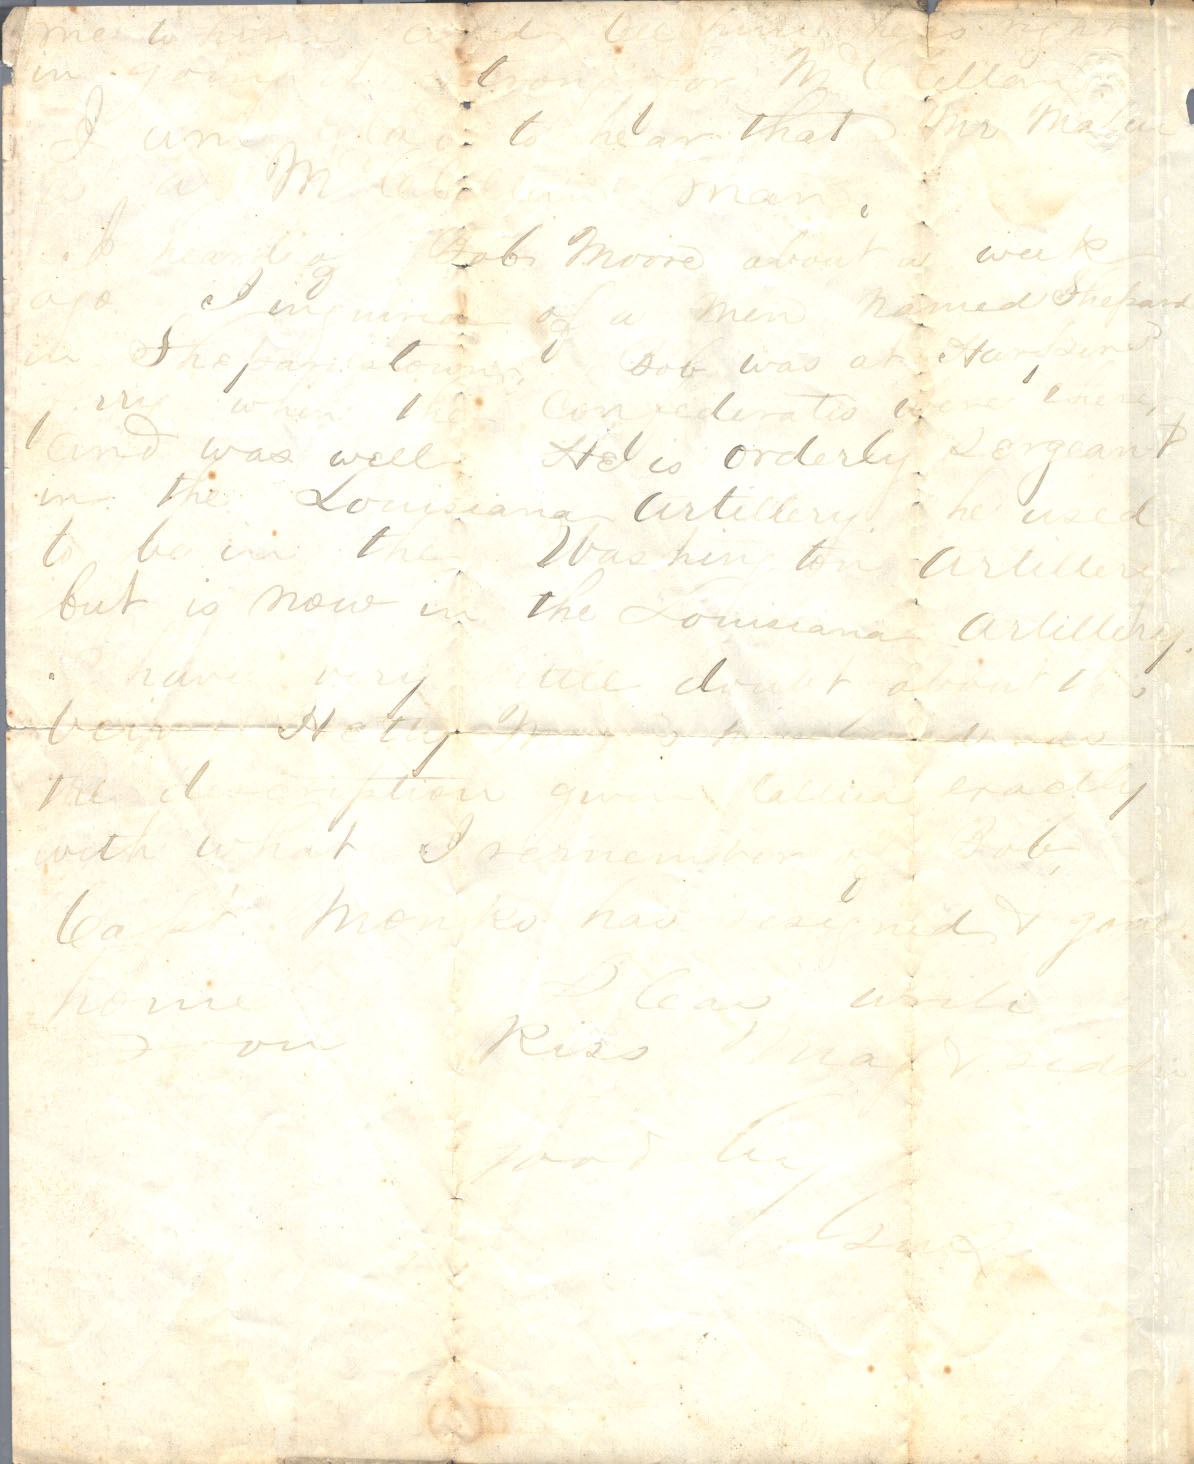 me to him and tell him he is right
in going strong for McClellan
I am glad to hear that Mr
is a McClellan man.
I heard of Bob Moore about a week
ago I inquired of a men named Shepard
in Shepardstown, Bob was at Harpers
when the Confederates were there,
and was well He is orderly Sergeant
in the Louisiana Artillery, he used
to be in the Washington Artillery
but is now in the Louisiana Artillery.
I have very little doubt about his
being Hetty husband as
the description given exactly
with what I remember of Bob,
Capt Monks has resigned & gone
home Pleas write
soon Kiss May &
good by